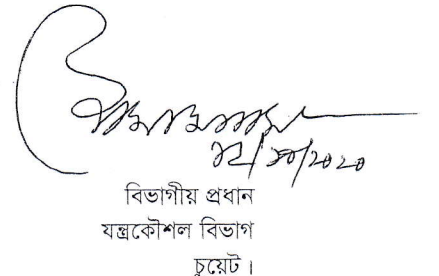 ১২/১০/২০২০
বিভাগীয় প্রধান
যন্ত্রকৌশল বিভাগ
চুয়েট।